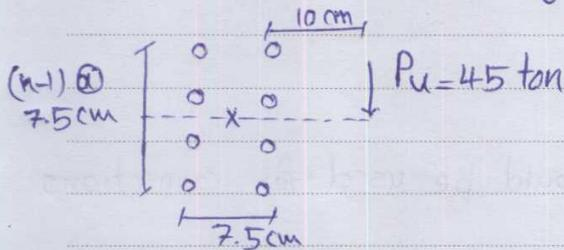 10 cm
(n-1) @
7.5 cm
Pu = 45 ton
x
7.5 cm